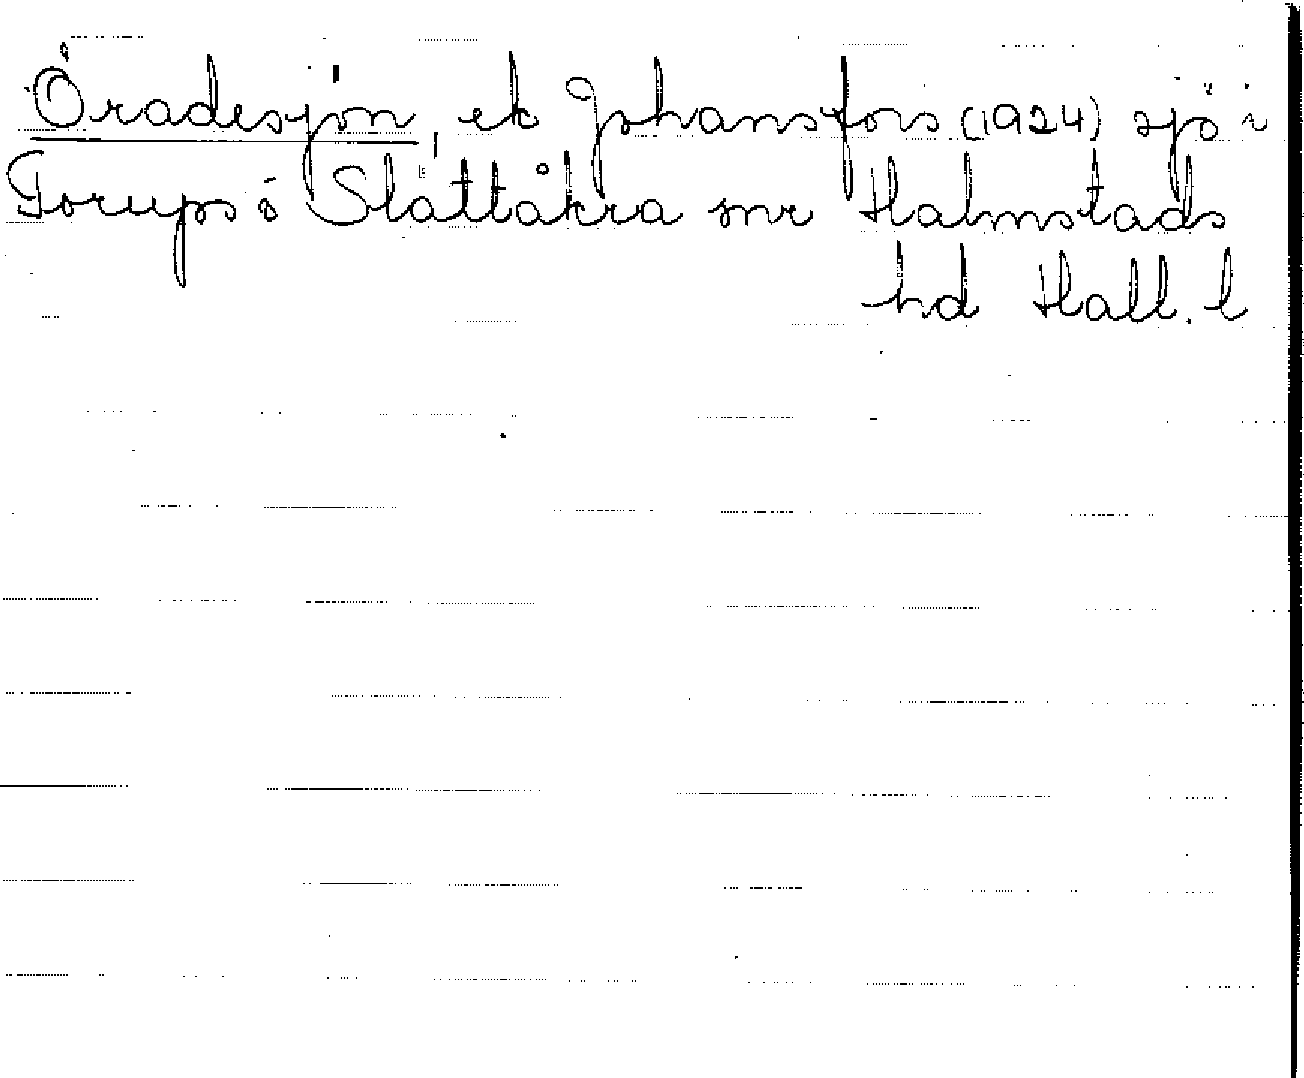 Öradesjön, ek Johansfors (1924) sjö i
Torups o Slättåkra snr Halmstads
hd Hall. l